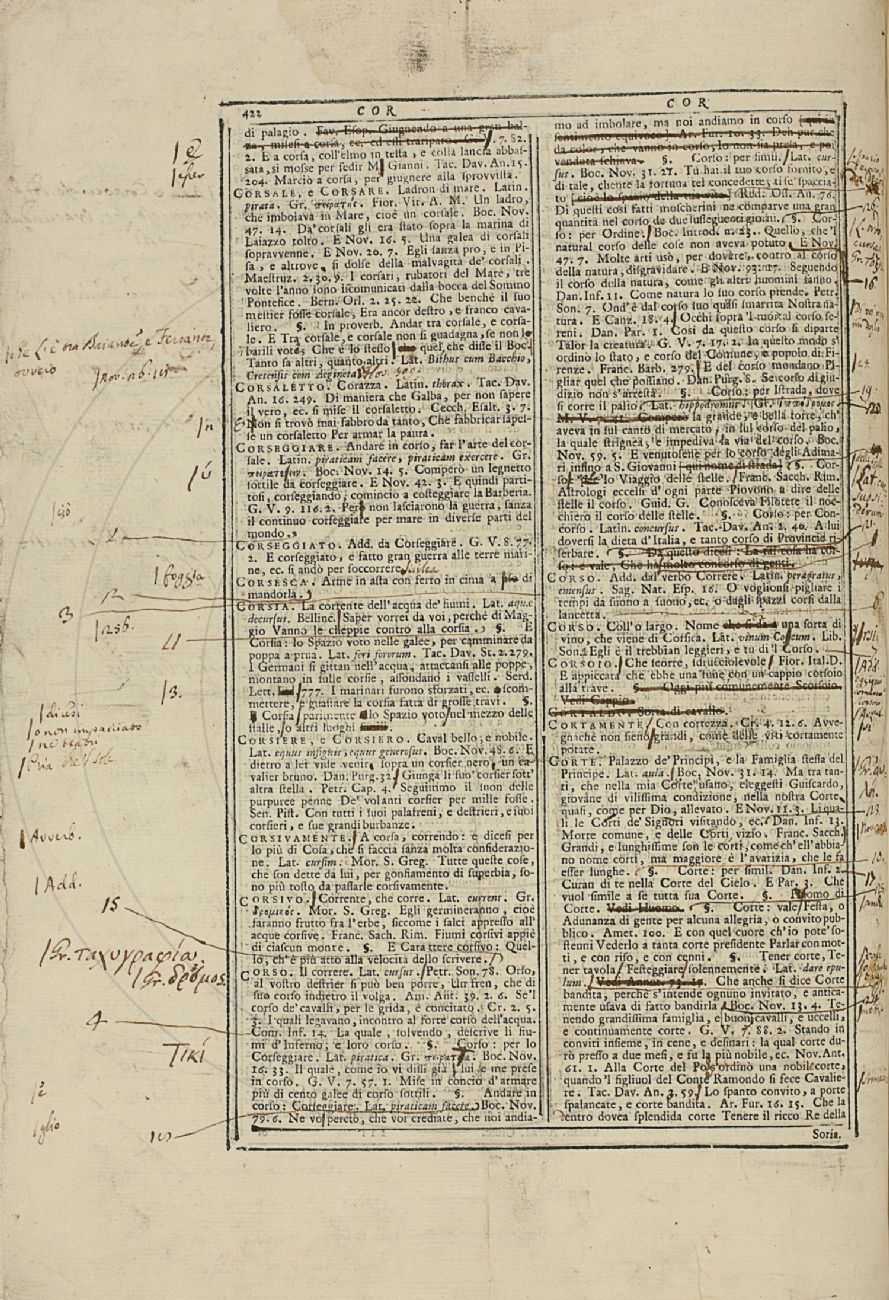 422 COR
COR
di palagio. Fav. Esop. Giugnendo a una gran bal-
za, misesi a corsa, ec. 7. 82.
2. E a corsa, coll'elmo in testa, e colla lancia abbas-
sata, si mosse per fedir M. Gianni. Tac. Dav. An. 15.
204. Marciò a corsa, per giugnere alla sprovvista.
CORSALE, e CORSARE. Ladron di mare. Latin.
pirata. Gr. πειρατής. Fior. Vir. A. M. Un ladro,
che imbolava in Mare, cioè un corsale. Boc. Nov.
47. 14. Da' corsali gli era stato sopra la marina di
Laiazzo tolto. E Nov. 16. 5. Una galea di corsali
sopravvenne. E Nov. 20. 7. Egli sanza pro, e in Pi-
sa, e altrove, si dolse della malvagità de' corsali.
Maestruz. 2. 30. 9. I corsari, rubatori del Mare, tre
volte l'anno sono iscomunicati dalla bocca del Sommo
Pontefice. Bern. Orl. 2. 25. 22. Che benchè il suo
mestier fosse corsale, Era ancor destro, e franco cava-
liero. §. In proverb. Andar tra corsale, e corsa-
le. E Tra corsale, e corsale non si guadagna, se non le
barili vote, Che è lo stesso quel, che disse il Boc.
Tanto sa altri, quanto altri. Lat. Bithus cum Bacchio,
Cretensis cum Aegineta
CORSALETTO. Corazza. Latin. thorax. Tac. Dav.
An. 16. 249. Di maniera che Galba, per non sapere
il vero, ec. si mise il corsaletto. Cecch. Esalt. 3. 7.
E Non si trovò mai fabbro da tanto, Che fabbricar sapes-
se un corsaletto Per armar la paura.
CORSEGGIARE. Andare in corso, far l'arte del cor-
sale. Latin. piraticam facere, piraticam exercere. Gr.
Boc. Nov. 14. 5. Comperò un legnetto
sottile da corseggiare. E Nov. 42. 3. E quindi parti-
tosi, corseggiando, cominciò a costeggiare la Barberia.
G. V. 9. 116. 2. Però non lasciarono la guerra, sanza
il continuo corseggiare per mare in diverse parti del
mondo.
CORSEGGIATO. Add. da Corseggiare. G. V. 8. 77.
2. E corseggiato, e fatto gran guerra alle terre mari-
ne, ec. si andò per soccorrere
CORSESCA. Arme in asta con ferro in cima a di
mandorla.
CORSIA. La corrente dell'acqua de' fiumi. Lat. aquae
decursus. Bellinc. Saper vorrei da voi, perchè di Mag-
gio Vanno le cheppie contro alla corsia. §. E
Corsia: lo Spazio voto nelle galee, per camminare da
poppa a prua. Lat. fori fororum. Tac. Dav. St. 2. 279.
I Germani si gittan nell'acqua, attaccansi alle poppe,
montano in sulle corsie, affondano i vasselli. Serd.
Lett. 777. I marinari furono sforzati, ec. a scom-
mettere, e guastare la corsia fatta di grosse travi. §.
Corsia parimente lo Spazio voto nel mezzo delle
stalle, o altri luoghi
CORSIERE, e CORSIERO. Caval bello, e nobile.
Lat. equus insignis, equus generosus. Boc. Nov. 48. 6. E
dietro a lei vide venire sopra un corsier nero, un ca-
valier bruno. Dan. Purg. 32. Giunga li suo' corsier sott'
altra stella. Petr. Cap. 4. Seguitimo il suon delle
purpuree penne De' volanti corsier per mille fosse.
Sen. Pist. Con tutti i suoi palafreni, e destrieri, e suoi
corsieri, e sue grandi burbanze.
CORSIVAMENTE. A corsa, correndo: e dicesi per
lo più di Cosa, che si faccia sanza molta considerazio-
ne. Lat. cursim. Mor. S. Greg. Tutte queste cose,
che son dette da lui, per gonfiamento di superbia, so-
no più tosto da passarle corsivamente.
CORSIVO. Corrente, che corre. Lat. currens. Gr.
δρομικός. Mor. S. Greg. Egli germineranno, cioè
faranno frutto fra l'erbe, siccome i salci appresso all'
acque corsive. Franc. Sach. Rim. Fiumi corsivi appiè
di ciascun monte. §. E Carattere corsivo: Quel-
lo, ch'è più atto alla velocità dello scrivere.
CORSO. Il correre. Lat. cursus. Petr. Son. 78. Orso,
al vostro destrier si può ben porre, Un fren, che di
suo corso indietro il volga. Am. Ant. 39. 2. 6. Se'l
corso de' cavalli, per le grida, è concitato. Cr. 2. 5.
I quali legavano, incontro al forte corso dell'acqua.
Com. Inf. 14. La quale, solvendo, descrive li fiu-
mi d'Inferno, e loro corso. §. Corso: per lo
Corseggiare. Lat. piratica. Gr. Boc. Nov.
16. 33. Il quale, come io vi dissi già, lui e me prese
in corso. G. V. 7. 57. 1. Mise in concio d'armare
più di cento galee di corso sottili. §. Andare in
corso: Corseggiare. Lat. piraticam facere. Boc. Nov.
79. 6. Ne vo' perciò, che voi crediate, che noi andia-
mo ad imbolare, ma noi andiamo in corso (qui in
sentimento equivoco). Ar. Fur. 10. 33. Deh pur che
da color, che vanno in corso, Io non sia presa, e poi
venduta schiava. §. Corso: per simil. Lat. cur-
sus. Boc. Nov. 31. 27. Tu hai il tuo corso fornito, e
di tale, chente la fortuna tel concedette, ti se' spaccia-
to cioè lo spazio della tua vita. Red. Oss. An. 76.
Di questi così fatti moscherini ne comparve una gran
quantità nel corso de' due susseguenti giorni. §. Cor-
so: per Ordine. Boc. Introd. n. 23. Quello, che'l
natural corso delle cose non aveva potuto. E Nov.
47. 7. Molte arti usò, per dovere, contro al corso
della natura, disgravidare. E Nov. 93. 7. Seguendo
il corso della natura, come gli altri huomini fanno.
Dan. Inf. 11. Come natura lo suo corso prende. Petr.
Son. 7. Ond'è dal corso suo quasi smarrita Nostra na-
tura. E Canz. 18. 4. Occhi sopra 'l mortal corso se-
reni. Dan. Par. 1. Così da questo corso si diparte
Talor la creatura. G. V. 7. 17. 2. In questo modo s'
ordinò lo stato, e corso del Comune, e popolo di Fi-
renze. Franc. Barb. 279. E del corso mondano Pi-
gliar quel che possiano. Dan. Purg. 8. Se corso di giu-
dizio non s'arresta. §. Corso: per Istrada, dove
si corre il palio. Lat. hippodromus. Gr.
M. V. Comperò la grande, e bella torre, ch'
aveva in sul canto di mercato, in sul corso del palio,
la quale strignea, e impediva la via del corso. Boc.
Nov. 59. 5. E venutosene per lo corso degli Adima-
ri insino a S. Giovanni (qui nome di strada) §. Cor-
so: lo Viaggio delle stelle. Franc. Sacch. Rim.
Astrologi eccelsi d'ogni parte Piovono a dire delle
stelle il corso. Guid. G. Conosceva Filotete il noc-
chiero il corso delle stelle. §. Corso: per Con-
corso. Latin. concursus. Tac. Dav. An. 2. 40. A lui
doversi la dieta d'Italia, e tanto corso di Provincie ri-
serbare. §. Da questo dicesi: La tal cosa ha cor-
so: e vale, Che ha molto concorso di genti.
CORSO. Add. dal verbo Correre. Latin. peragratus,
emensus. Sag. Nat. Esp. 16. O voglionsi pigliare i
tempi da suono a suono, ec. o dagli spazzi corsi dalla
lancetta.
CORSO. Coll'o largo. Nome che si dà a una sorta di
vino, che viene di Corsica. Lat. vinum Corsicum. Lib.
Son. Egli è il trebbian leggieri, e tu di'l Corso.
CORSOIO. Che scorre, isdrucciolevole. Fior. Ital. D.
E appiccata che ebbe una fune con un cappio corsoio
alla trave. §. Oggi più comunemente Scorsoio.
Vedi Cappio.
CORTALDO. Sorta di cavallo.
CORTAMENTE. Con cortezza. Cr. 4. 12. 6. Avve-
gnachè non sieno grandi, come delle viti cortamente
potate.
CORTE. Palazzo de' Principi, e la Famiglia stessa del
Principe. Lat. aula. Boc. Nov. 31. 14. Ma tra tan-
ti, che nella mia Corte usano, eleggesti Guiscardo,
giovane di vilissima condizione, nella nostra Corte,
quasi, come per Dio, allevato. E Nov. 11. 3. Li qua-
li le Corti de' Signori visitando, ec. Dan. Inf. 13.
Morte comune, e delle Corti vizio. Franc. Sacch.
Grandi, e lunghissime son le corti, come ch'ell'abbia-
no nome corti, ma maggiore è l'avarizia, che le fa
esser lunghe. §. Corte: per simil. Dan. Inf. 2.
Curan di te nella Corte del Cielo. E Par. 3. Che
vuol simile a se tutta sua Corte. §. Huomo di
Corte. Vedi Huomo. §. Corte: vale Festa, o
Adunanza di gente per alcuna allegria, o convito pub-
blico. Amet. 100. E con quel cuore ch'io pote' so-
stenni Vederlo a tanta corte presidente Parlar con mot-
ti, e con riso, e con cenni. §. Tener corte, Te-
ner tavola, Festeggiare solennemente. Lat. dare epu-
lum. Vedi Annot. 73. 15. Che anche si dice Corte
bandita, perchè s'intende ognuno invitato, e antica-
mente usava di fatto bandirla. Boc. Nov. 13. 4. Te-
nendo grandissima famiglia, e buon cavalli, e uccelli,
e continuamente corte. G. V. 7. 88. 2. Stando in
conviti insieme, in cene, e desinari: la qual corte du-
rò presso a due mesi, e fu la più nobile, ec. Nov. Ant.
61. 1. Alla Corte del Po s'ordinò una nobile corte,
quando 'l figliuol del Conte Ramondo si fece Cavalie-
re. Tac. Dav. An. 3. 59. Lo spanto convito, a porte
spalancate, e corte bandita. Ar. Fur. 16. 15. Che la
dentro dovea splendida corte Tenere il ricco Re della
Soria.
ovvero
foggia
3
11
1256.
13.
dicesi
Avverb.
Add.
15
Gr. ταχυγραφία.
Gr. δρόμος.
4
glio